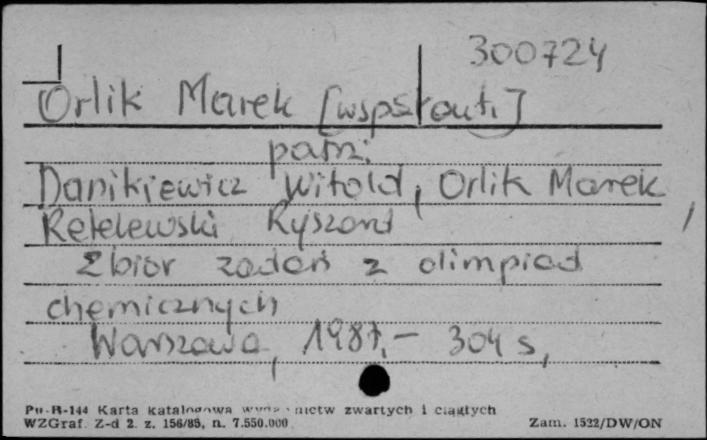 300724
Orlik Marek [współaut.]
patrz:
Danikiewicz Witold, Orlik Marek,
Retelewski Ryszard
Zbiór zadań z olimpiad
chemicznych
Warszawa, 1987, – 304 s,
Pu-B-144 Karta katalogowa wydawnictw zwartych i ciągłych
WZGraf. Z-d 2. z. 156/85, n. 7.550.000 Zam. 1522/DW/ON